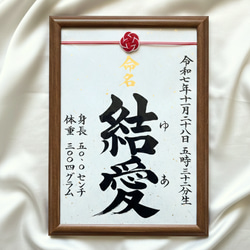 令和七年十一月二十八日 五時三十二分生
命名
結愛
ゆあ
身長 五〇.〇センチ
体重 三〇〇四グラム